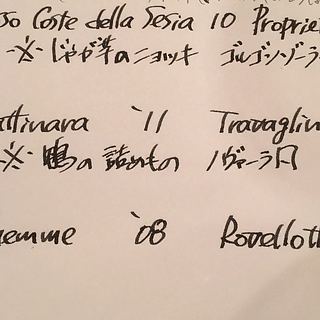 so Coste della Sesia 10 Proprie
※ じゃが芋のニョッキ ゴルゴンゾーラ
ttinara '11 Travaglin
※ 鴨の詰めもの ノヴァーラ风
emme '08 Rovellott